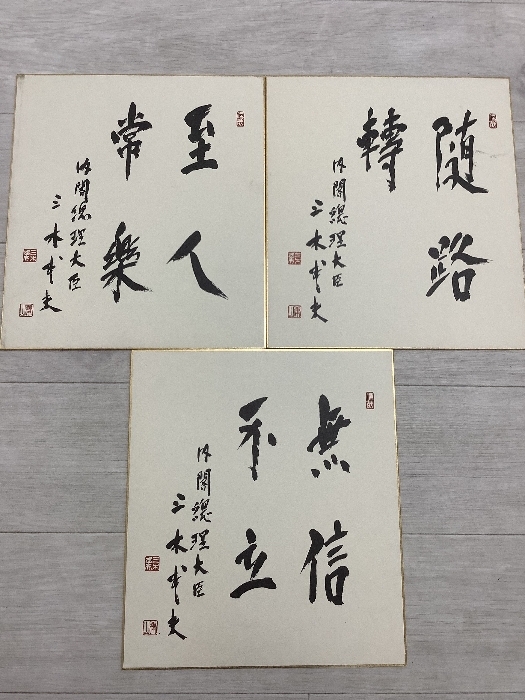 至人
常樂
内閣總理大臣
三木武夫
随路
轉
内閣總理大臣
三木武夫
無信
不立
内閣總理大臣
三木武夫